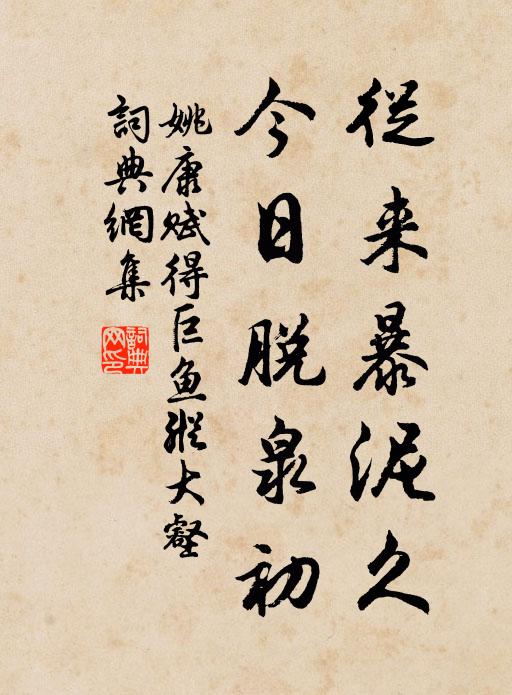 從来暴泥久
今日脱泉初
姚康赋得巨魚縱大壑
詞典網集
詞典网印